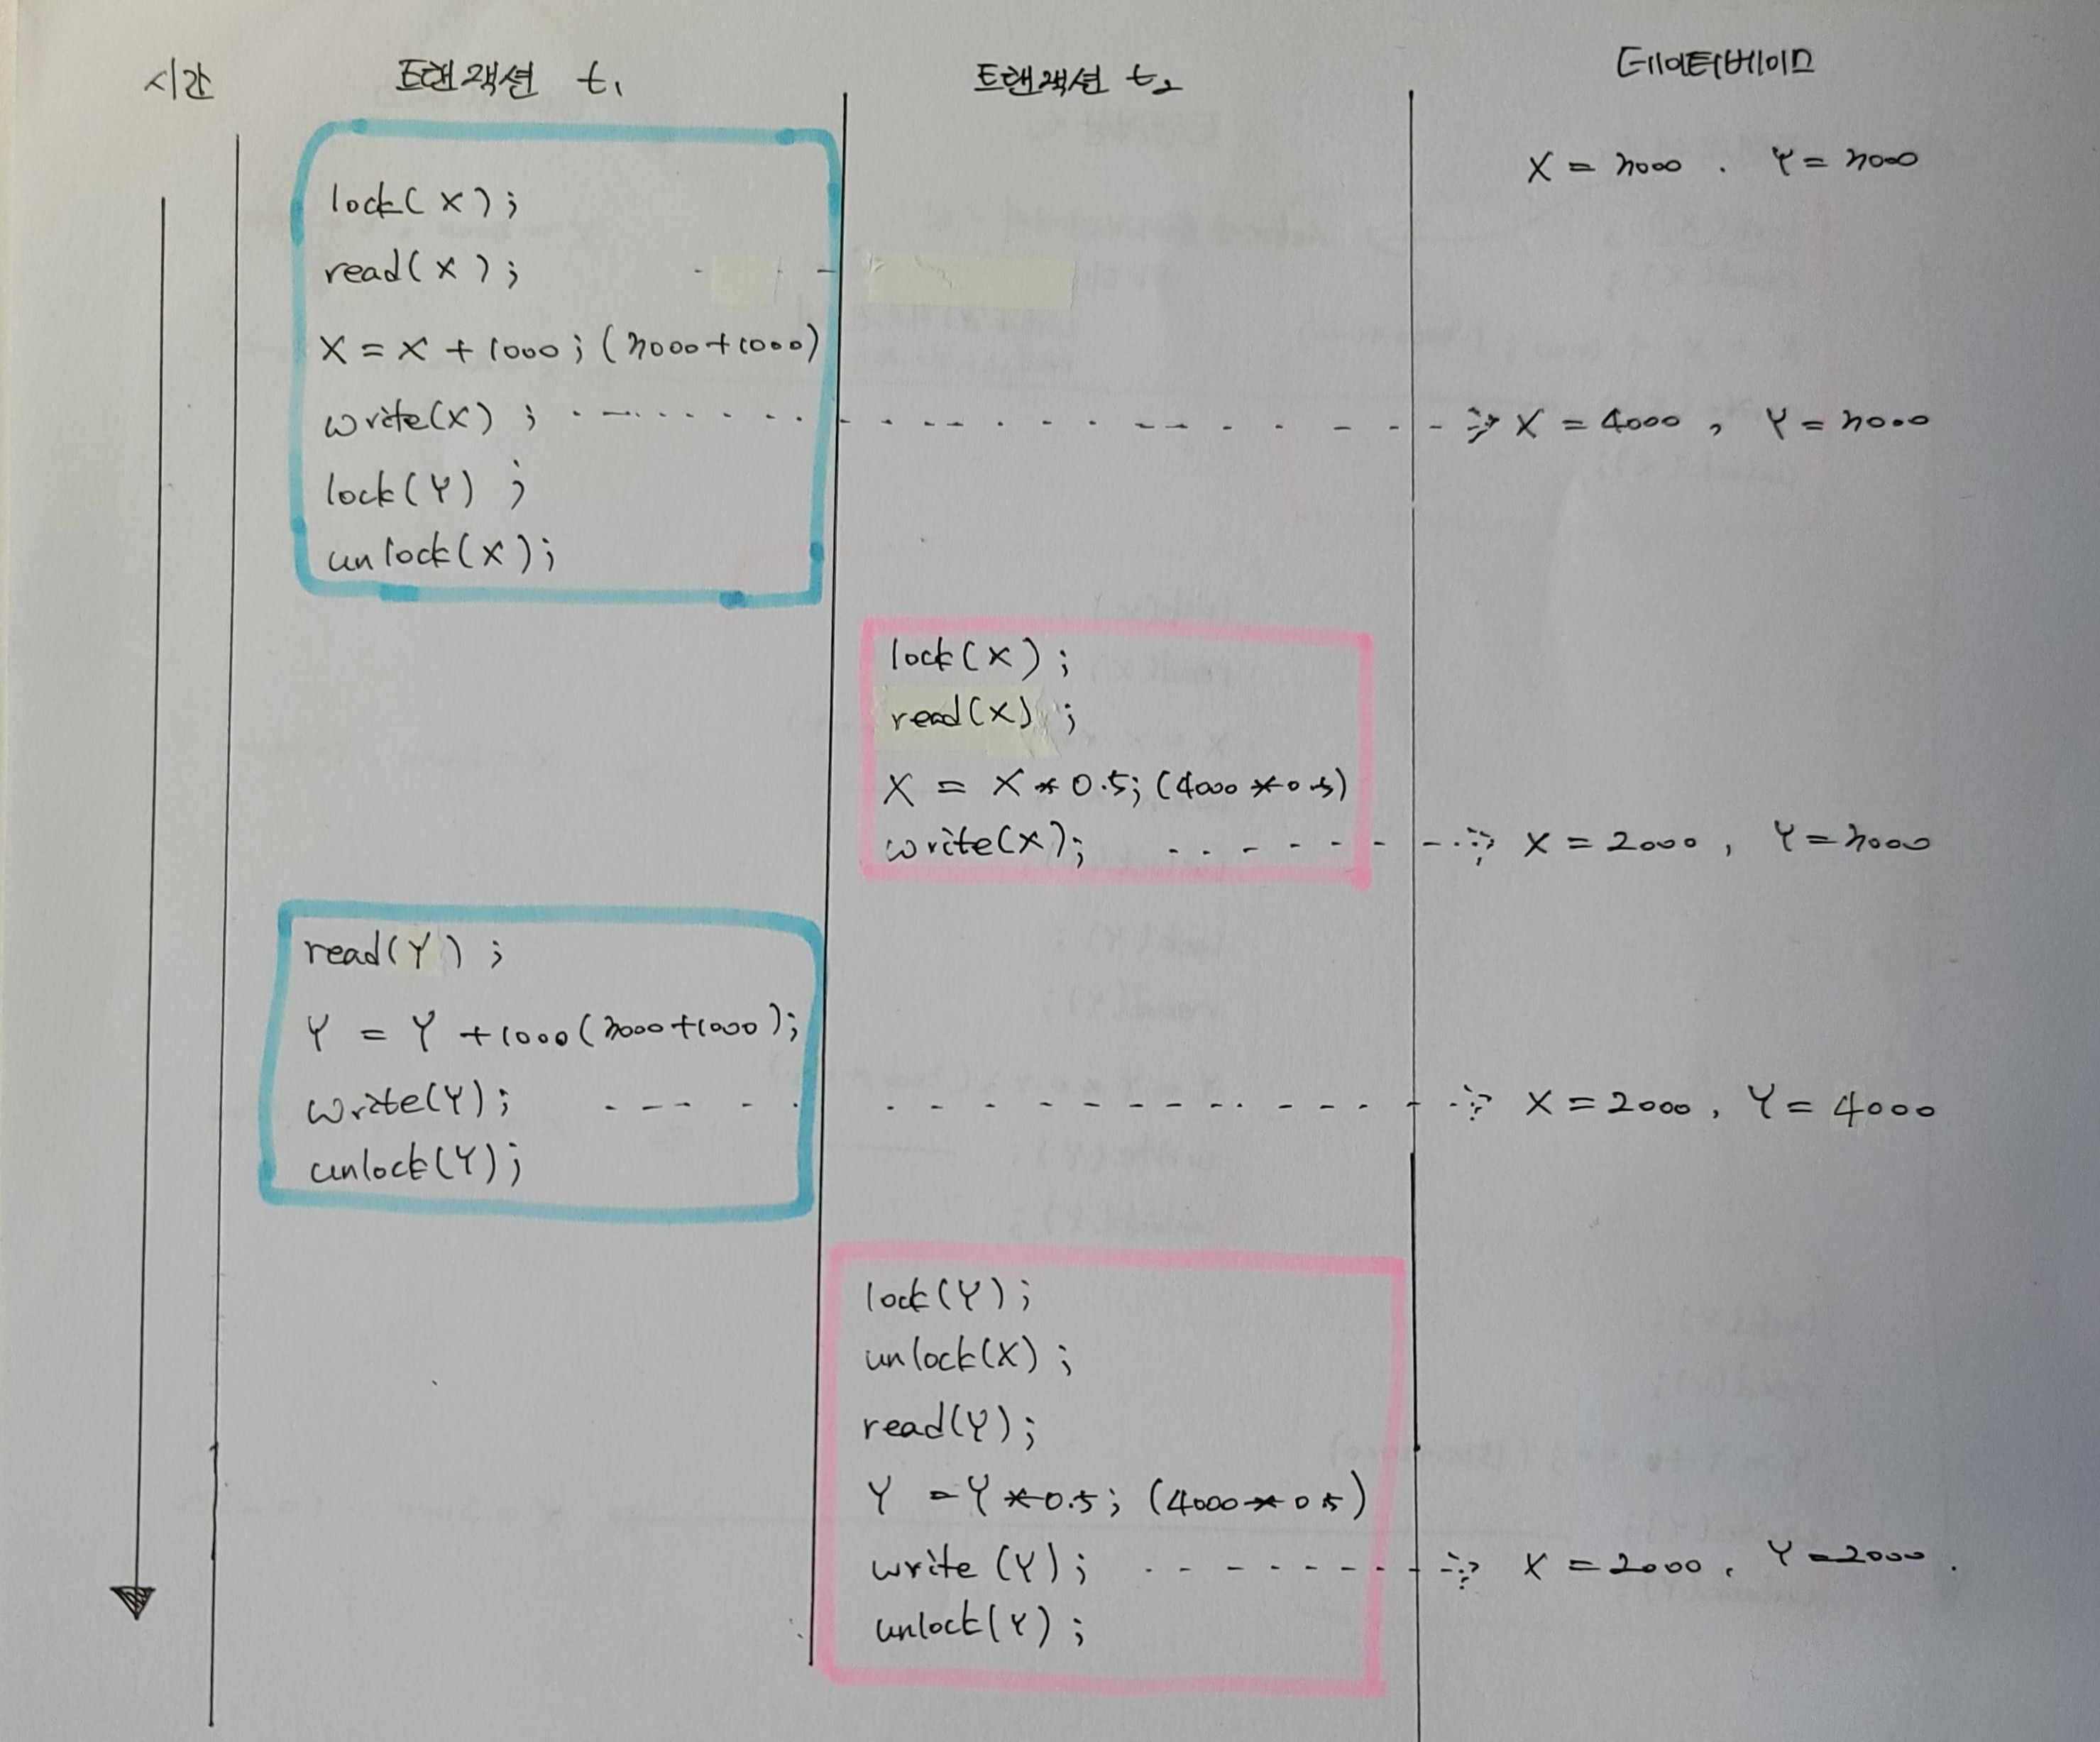 시간 트랜잭션 t₁ 트랜잭션 t₂ 데이터베이스
X = 3000 . Y = 3000
lock(X);
read(X);
X = X + 1000; (3000+1000)
write(X); X = 4000, Y = 3000
lock(Y);
unlock(X);
lock(X);
read(X);
X = X * 0.5; (4000 * 0.5)
write(X); X = 2000, Y = 3000
read(Y);
Y = Y + 1000(3000+1000);
write(Y); X = 2000, Y = 4000
unlock(Y);
lock(Y);
unlock(X);
read(Y);
Y = Y * 0.5; (4000 * 0.5)
write(Y); X = 2000, Y = 2000.
unlock(Y);